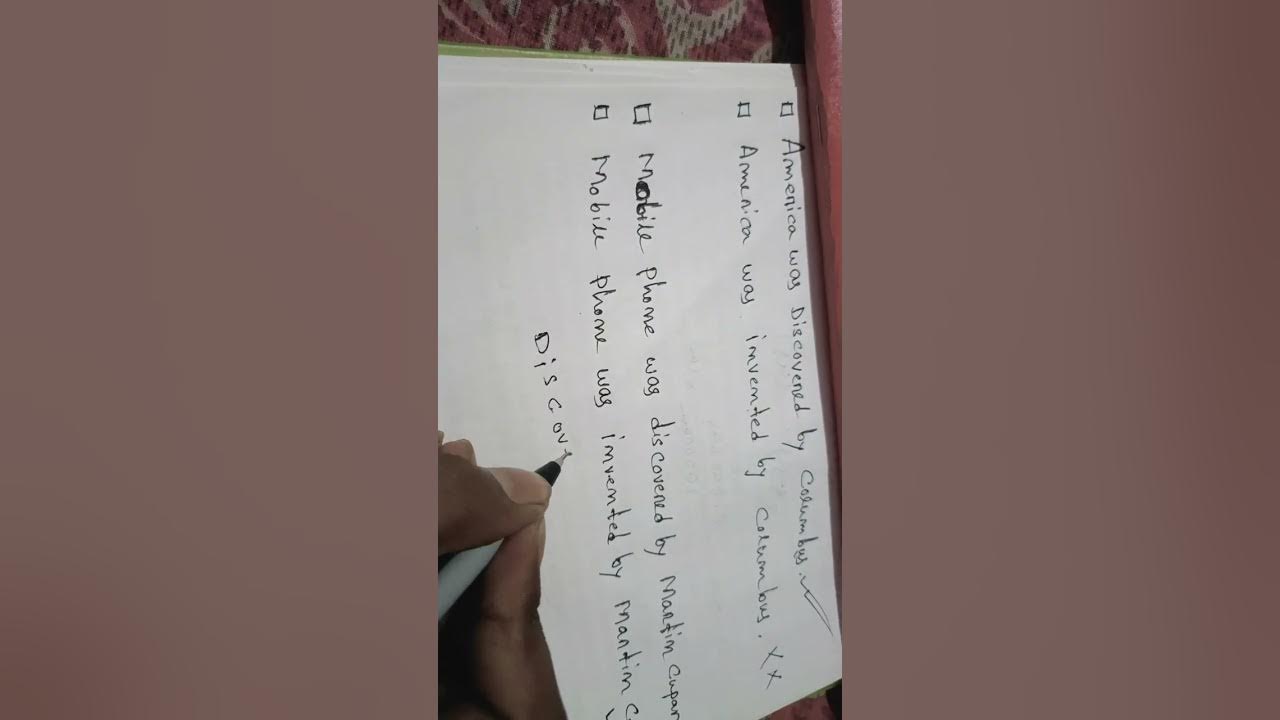 □ America was Discovered by Columbus. ✓
□ America was invented by Columbus. XX
□ Mobile phone was discovered by Martin Cupar
□ Mobile phone was invented by Martin C
Discov